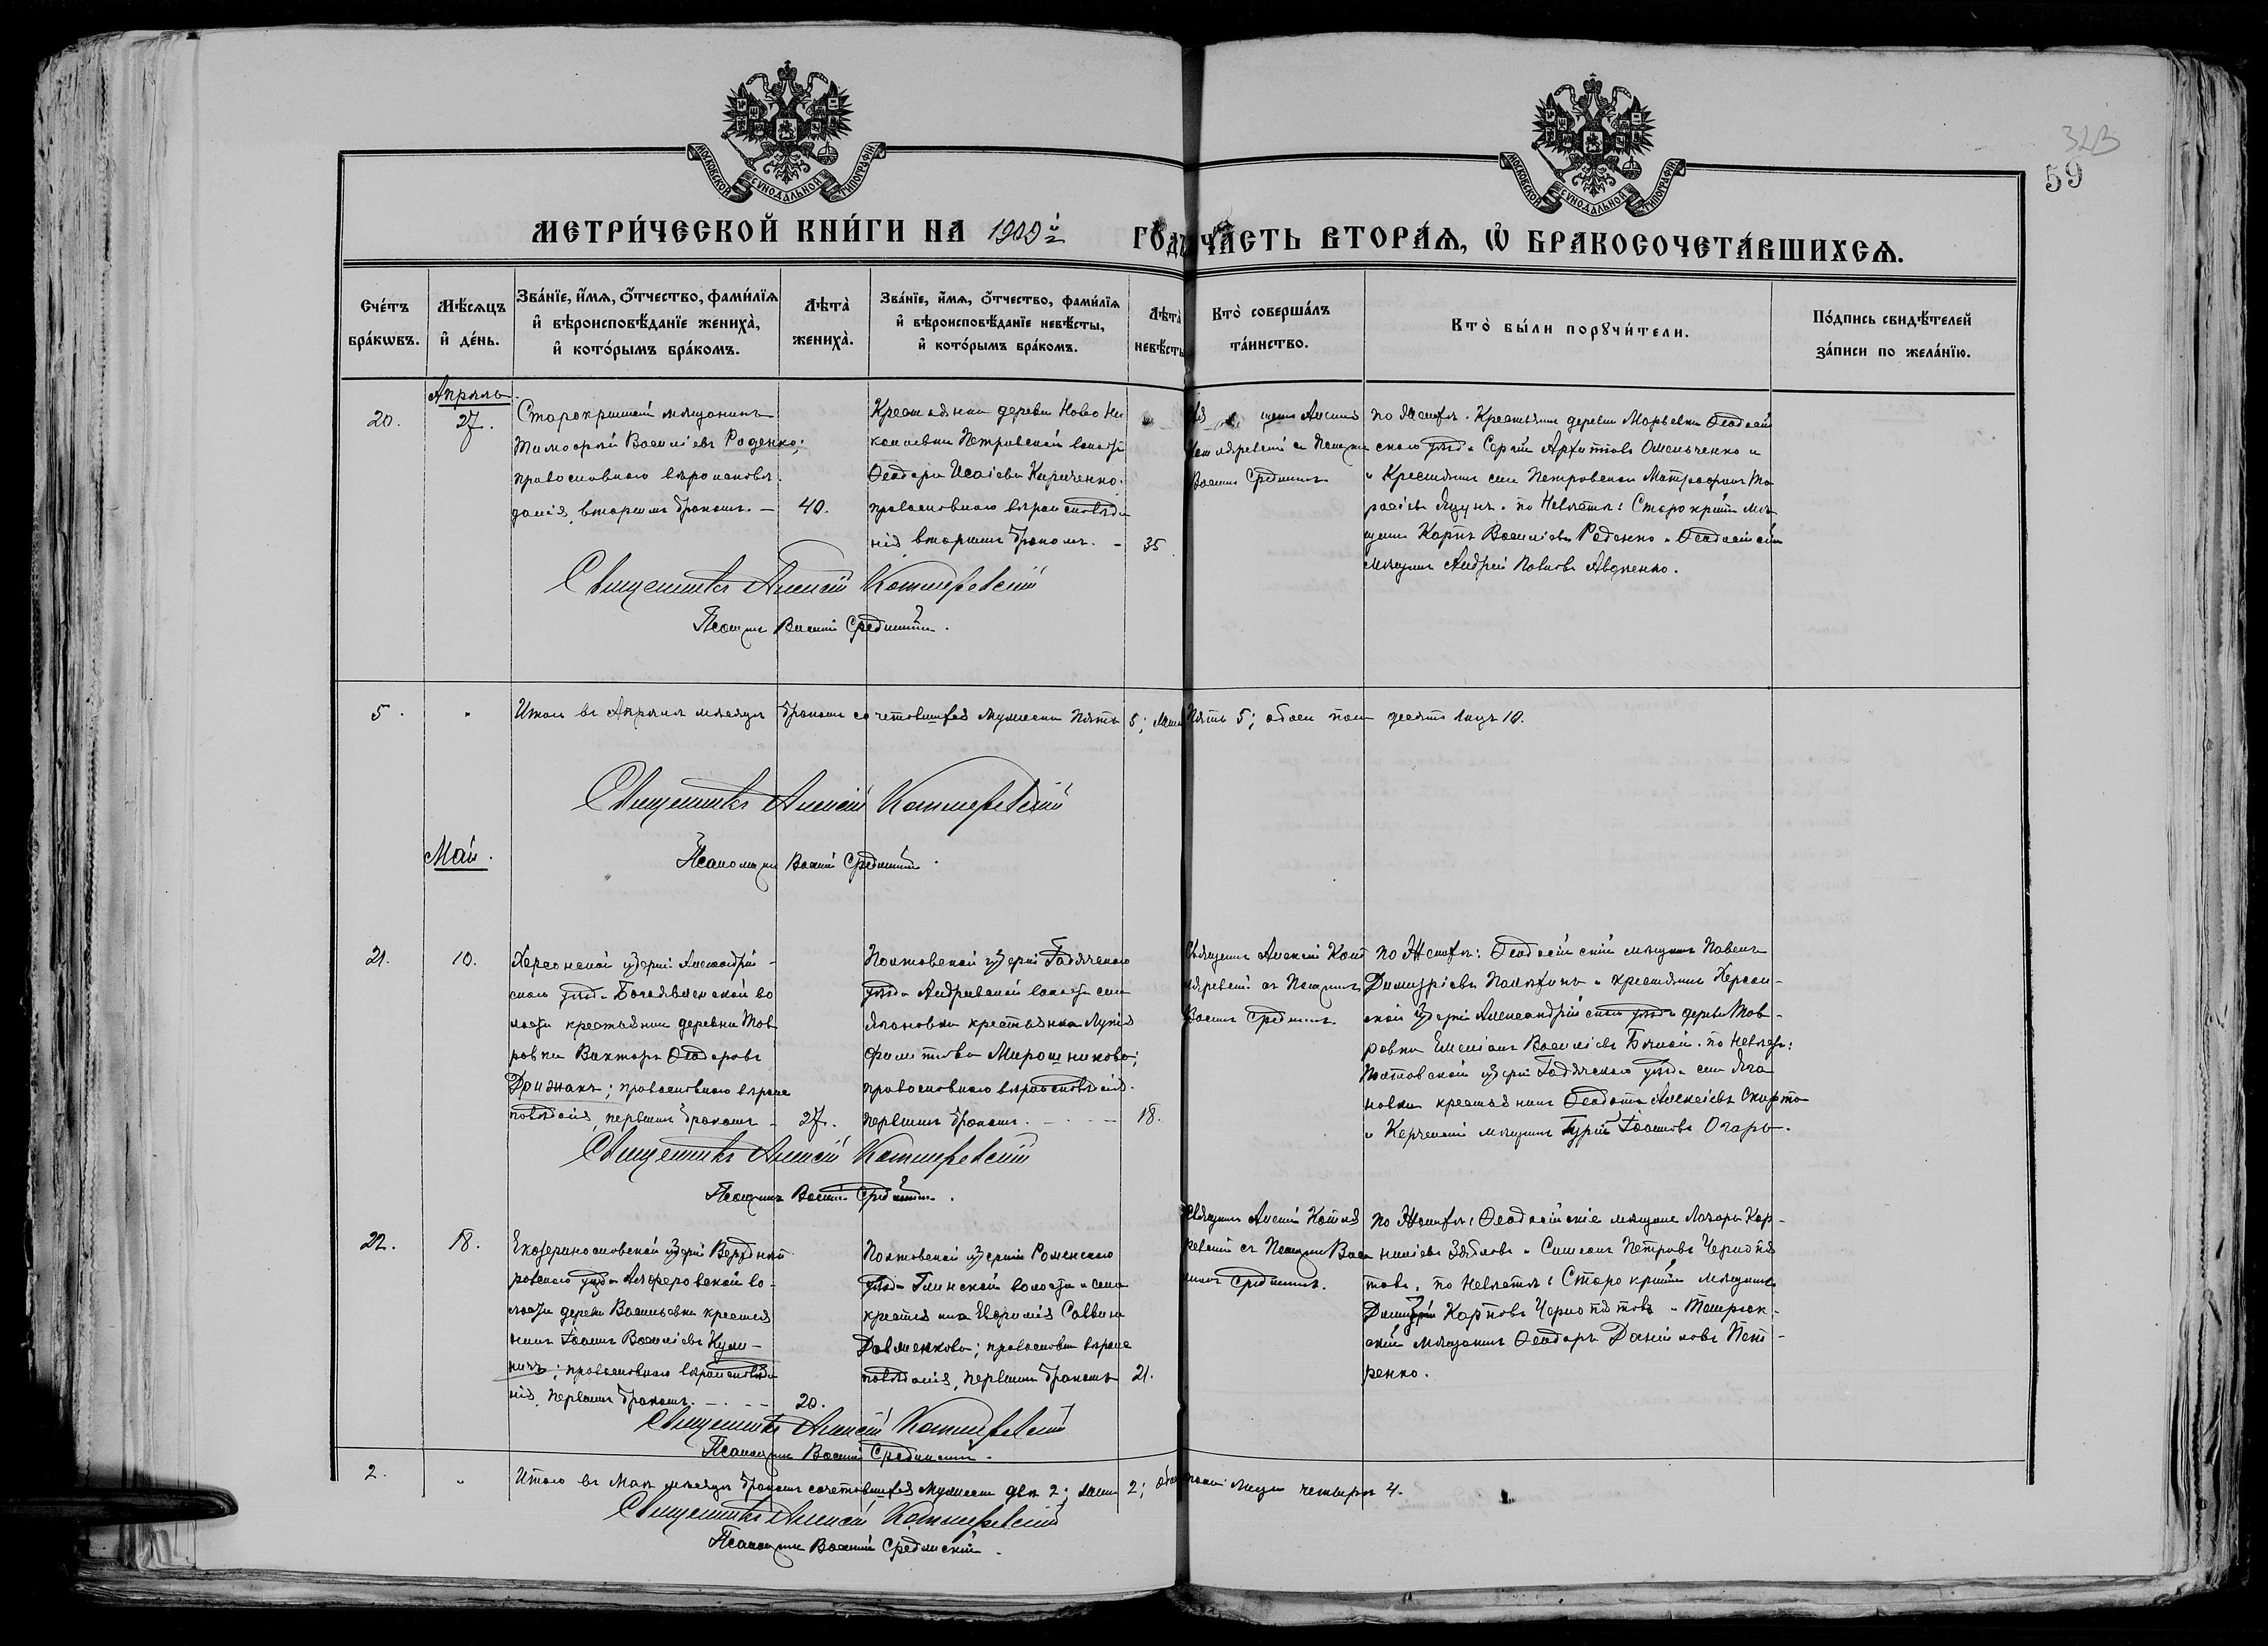 МОСКОВСКОЙ СУНОДАЛЬНОЙ ТИПОГРАФІИ
МОСКОВСКОЙ СУНОДАЛЬНОЙ ТИПОГРАФІИ
59
МЕТРИ́ЧЕСКОЙ КНИ́ГИ НА 1909й ГО́ДЪ ЧА́СТЬ ВТОРА́Ѧ, Ѽ БРАКОСОЧЕТА́ВШИХСѦ.
Сче́тъ бра́кѡвъ.
Мѣ́сѧцъ и҆ де́нь.
Зва́нїе, и҆́мѧ, ѻ҆́тчество, фами́лїѧ
и҆ вѣроисповѣ́данїе жениха̀,
и҆ кото́рымъ бра́комъ.
Лѣта̀ жениха̀.
Зва́нїе, и҆́мѧ, ѻ҆́тчество, фами́лїѧ
и҆ вѣроисповѣ́данїе невѣ́сты,
и҆ кото́рымъ бра́комъ.
Лѣта̀ невѣ́сты
Кто̀ соверша́лъ
та́инство.
Кто̀ бы́ли порꙋчи́тели.
По́дпись свидѣ́телей
за́писи по жела́нїю.
Апрѣль
20.
27.
Старокрымскій мѣщанинъ
Тимофей Василіевъ Роденко;
православнаго вѣроисповѣ-
данія, вторымъ бракомъ. —
40.
Крестьянка деревни Ново Ни
колаевки Петровской волости
Ѳеодора Исаіева Кириченко.
православнаго вѣроисповѣда
нія вторымъ бракомъ. -
35.
Василій Срединскій
по Женихѣ. Крестьянинъ деревни Марьевки Ѳеодосій
скаго уѣзда Сергій Архиповъ Омельченко и
и Крестьянинъ села Петровскаго Митрофанъ Та
расіевъ Яцунъ. по Невѣстѣ: Старокрымскій мѣ
щанинъ Карпъ Василіевъ Роденко и Ѳеодосійскій
мѣщанинъ Андрей Павловъ Авдѣенко.
Священникъ Алексій Котляревскій
Псаломщикъ Василій Срединскій.
5.
"
Итого въ Апрѣлѣ мѣсяцѣ бракомъ сочетавшихся мужеска пять 5; женска пять 5; обоего пола десять лицъ 10.
Священникъ Алексій Котляревскій
Май.
Псаломщикъ Василій Срединскій.
21.
10.
Херсонской губерніи Александрій-
скаго уѣзда Богоявленской во
лости крестьянинъ деревни Тов
ровки Викторъ Ѳеодоровъ
Доижакъ; православнаго вѣроис
повѣданія, первымъ бракомъ -
27.
Полтавской губерніи Гадячскаго
уѣзда Андреевской волости села
Лучановки крестьянка Лукія
Филиппова Мирошникова;
православнаго вѣроисповѣданія.
первымъ бракомъ. - - - -
18.
Священникъ Алексій Кот
ляревскій съ Псаломщикомъ
Василіемъ Срединскимъ
по Женихѣ: Ѳеодосійскій мѣщанинъ Павелъ
Димитріевъ и крестьянинъ Херсон-
ской губерніи Александрійскаго уѣзда деревни Тов-
ровки Емеліанъ Василіевъ Бѣлой. по Невѣстѣ:
Полтавской губерніи Гадячскаго уѣзда села
новки крестьянинъ Ѳеодотъ Алексіевъ Скирта
и Керченскій мѣщанинъ Гурій Іоанновъ Огарь.
Священникъ Алексій Котляревскій
Псаломщикъ Василій Срединскій.
22.
18.
Екатеринославской губерніи Верхднѣп
ровскаго уѣзда Алферовской во-
лости деревни Васильевки крестья
нинъ Іоаннъ Василіевъ Кули-
ничъ; православнаго вѣроисповѣда
нія, первымъ бракомъ. — . - -
20.
Полтавской губерніи Роменскаго
уѣзда Глинской волости и села
крестьянка Евфимія Саввина
Давиденкова; православнаго вѣроис
повѣданія, первымъ бракомъ
21.
Священникъ Алексій Котля
ревскій съ Псаломщикомъ Васи
ліемъ Срединскимъ.
по Женихѣ: Ѳеодосійскіе мѣщане Лазарь Кор-
ниліевъ Зябловъ и Симеонъ Петровъ Чернопя
товъ. по Невѣстѣ: Старокрымскій мѣщанинъ
Димитрій Карповъ Чернопятовъ и Темрюк-
скій мѣщанинъ Ѳеодоръ Даніиловъ Пет-
ренко.
Священникъ Алексій Котляревскій
Псаломщикъ Василій Срединскій.
2.
"
Итого въ Маѣ мѣсяцѣ бракомъ сочетавшихся мужеска два 2; женска 2; обоего пола лицъ четыре 4.
Священникъ Алексій Котляревскій
Псаломщикъ Василій Срединскій.